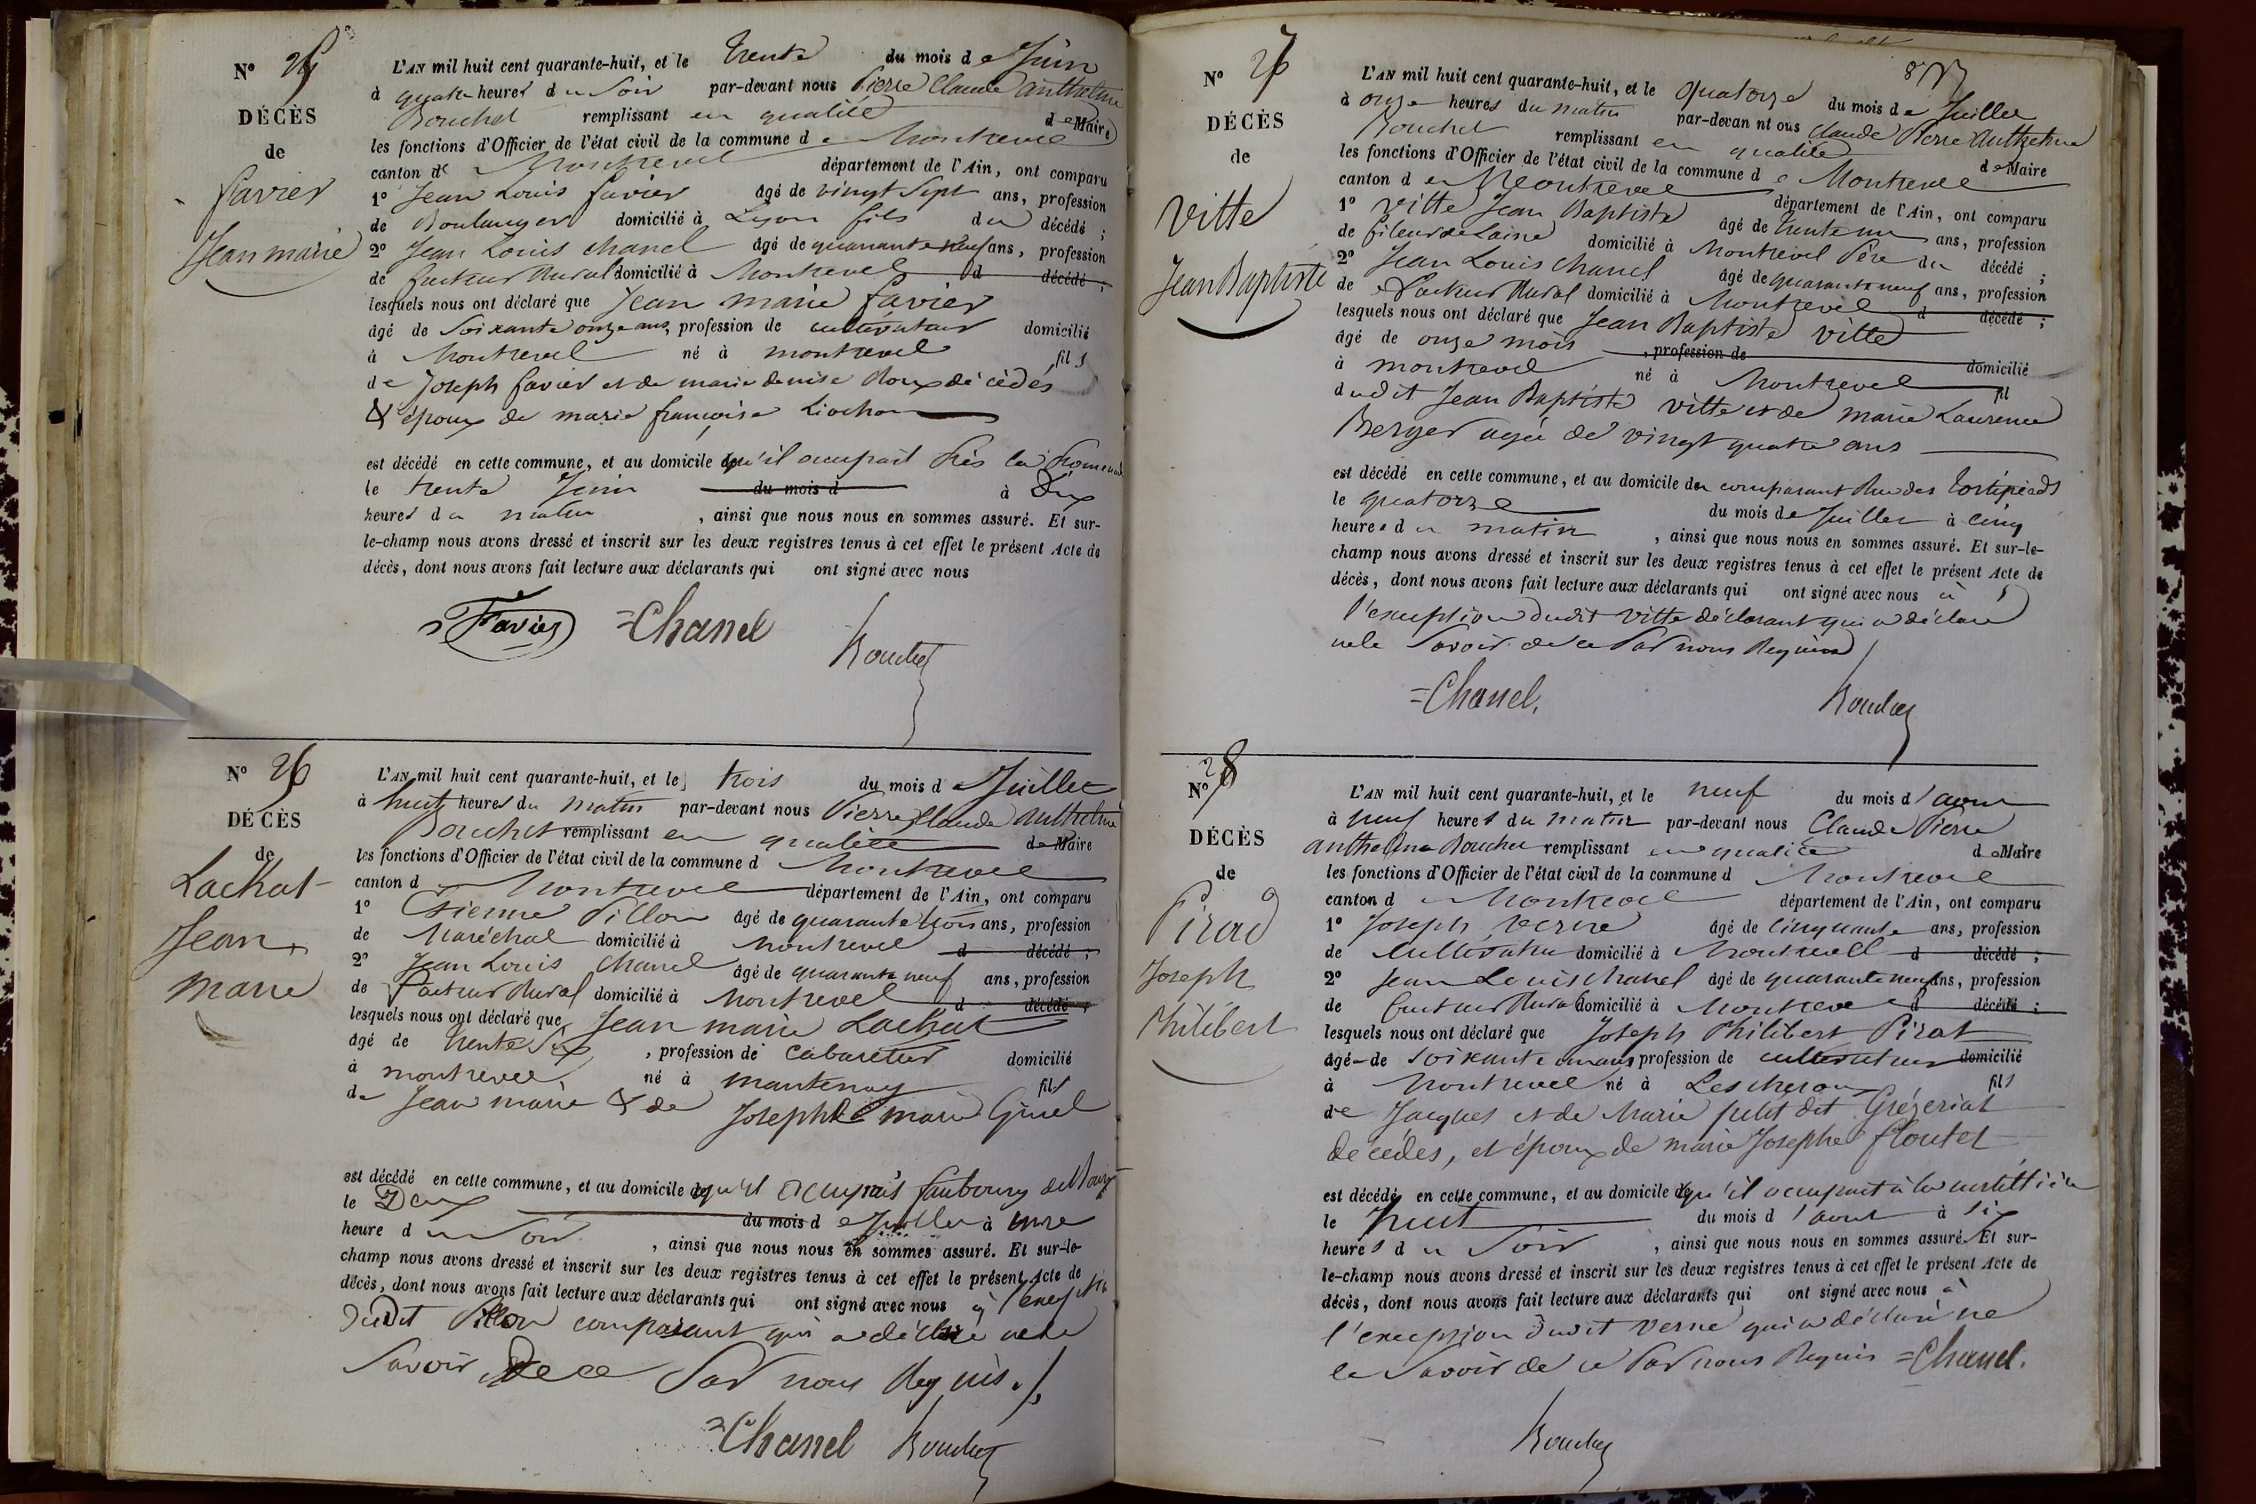 N° 25
DÉCÈS
de
favier
Jean marie
L'AN mil huit cent quarante-huit, et le trente du mois de Juin
à quatre heures du Soir par-devant nous Pierre Claude anthelme
Bouchet remplissant en qualité de Maire
les fonctions d'Officier de l'état civil de la commune de Montrevel
canton de Montrevel département de l'Ain, ont comparu
1° Jean Louis favier âgé de vingt Sept ans, profession
de Boulanger domicilié à Lyon fils du décédé ;
2° Jean Louis chanel âgé de quarante neuf ans, profession
de facteur Rural domicilié à Montrevel d décédé ;
lesquels nous ont déclaré que Jean marie favier
âgé de Soixante onze ans, profession de cultivateur domicilié
à Montrevel né à montrevel fils
de Joseph favier et de marie denise Roux décédés
& époux de marie françoise Liochon
est décédé en cette commune, et au domicile qu'il occupait Près la
le trente Juin du mois d à Dix
heures du matin , ainsi que nous nous en sommes assuré. Et sur-
le-champ nous avons dressé et inscrit sur les deux registres tenus à cet effet le présent Acte de
décès, dont nous avons fait lecture aux déclarants qui ont signé avec nous
Favier =Chanel
Bouchet
N° 26
DÉCÈS
de
Lachat
Jean
marie
L'AN mil huit cent quarante-huit, et le trois du mois de Juillet
à huit heures du matin par-devant nous Pierre Claude anthelme
Bouchet remplissant en qualité de Maire
les fonctions d'Officier de l'état civil de la commune d Montrevel
canton de Montrevel département de l'Ain, ont comparu
1° Etienne Pillon âgé de quarante trois ans, profession
de Maréchal domicilié à montrevel d décédé ;
2° Jean Louis chanel âgé de quarante neuf ans, profession
de facteur Rural domicilié à Montrevel d décédé ;
lesquels nous ont déclaré que Jean marie Lachat
âgé de trente Six , profession de cabaretier domicilié
à montrevel né à mantenay fils
de Jean marie & de Josephte marie
est décédé en cette commune, et au domicile qu'il occupais faubourg de Bourg
le Deux du mois de Juillet à une
heure du Soir , ainsi que nous nous en sommes assuré. Et sur-le-
champ nous avons dressé et inscrit sur les deux registres tenus à cet effet le présent Acte de
décès, dont nous avons fait lecture aux déclarants qui ont signé avec nous à l'exception
dudit Pillon comparant qui a déclaré ne le
Savoir De ce Par nous Requis ./.
=Chanel Bouchet
N° 27
DÉCÈS
de
Vitte
Jean Baptiste
L'AN mil huit cent quarante-huit, et le quatorze du mois de Juillet
à onze heures du matin par-devan nt ous Claude Pierre Anthelme
Bouchet remplissant en qualité de Maire
les fonctions d'Officier de l'état civil de la commune de Montrevel
canton de Montrevel département de l'Ain, ont comparu
1° Vitte Jean Baptiste âgé de trente un ans, profession
de fileur de Laine domicilié à Montrevel Père du décédé ;
2° Jean Louis chanel âgé de quarante neuf ans, profession
de facteur Rural domicilié à Montrevel d décédé ;
lesquels nous ont déclaré que Jean Baptiste vitte
âgé de onze mois , profession de domicilié
à montrevel né à Montrevel fil
dudit Jean Baptiste vitte et de marie Laurence
Berger agée de vingt quatre ans
est décédé en cette commune, et au domicile du comparant Rue des
le quatorze du mois de Juillet à cinq
heures du matin , ainsi que nous nous en sommes assuré. Et sur-le-
champ nous avons dressé et inscrit sur les deux registres tenus à cet effet le présent Acte de
décès, dont nous avons fait lecture aux déclarants qui ont signé avec nous à
l'exception dudit vitte déclarant qui a déclaré
ne le Savoir de ce Par nous Requis
=Chanel.
Bouchet
N° 28
DÉCÈS
de
Pirad
Joseph
Philibert
L'AN mil huit cent quarante-huit, et le neuf du mois d'aout
à neuf heures du matin par-devant nous Claude Pierre
anthelme Bouchet remplissant en qualité de Maire
les fonctions d'Officier de l'état civil de la commune d Montrevel
canton de Montrevel département de l'Ain, ont comparu
1° Joseph verne âgé de Cinquante ans, profession
de Cultivateur domicilié à Montrevel d décédé ;
2° Jean Louis chanel âgé de quarante neuf ans, profession
de facteur Rural domicilié à Montrevel d décédé ;
lesquels nous ont déclaré que Joseph Philibert Pirat
âgé de Soixante un ans profession de cultivateur domicilié
à Montrevel né à Lescheroux fils
de Jacques et de Marie petit dit Grézeriat
décédés, et époux de marie Josephe floutet
est décédé en cette commune, et au domicile qu'il occupait à la
le huit du mois d'aout à Six
heures du Soir , ainsi que nous nous en sommes assuré. Et sur-
le-champ nous avons dressé et inscrit sur les deux registres tenus à cet effet le présent Acte de
décès, dont nous avons fait lecture aux déclarants qui ont signé avec nous à
l'exception dudit verne qui a déclaré ne
le Savoir de ce Par nous Requis =Chanel.
Bouchet